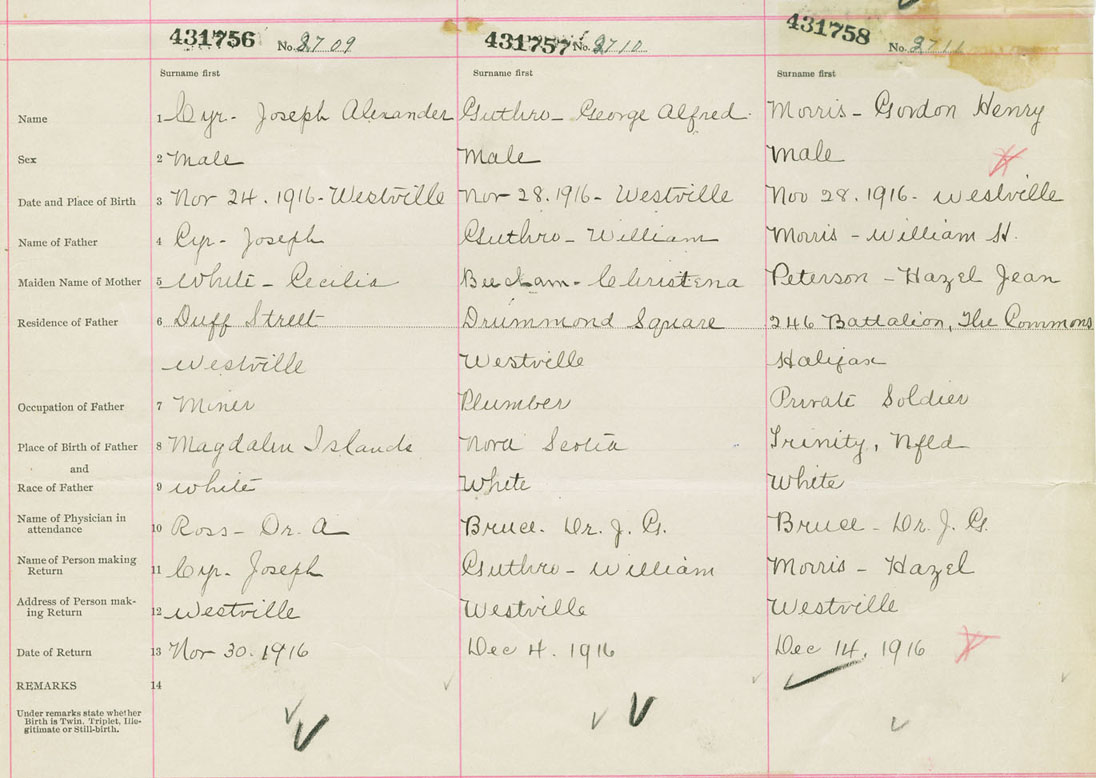 431756 No. 2709 431757 No. 2710 431758 No. 2711
Surname first Surname first Surname first
Name 1 Cyr- Joseph Alexander Guthro- George Alfred. Morris- Gordon Henry
Sex 2 Male Male Male
Date and Place of Birth 3 Nov 24. 1916- Westville Nov 28. 1916- Westville Nov 28. 1916- Westville
Name of Father 4 Cyr- Joseph Guthro- William Morris- William H.
Maiden Name of Mother 5 White- Cecilia Christena Peterson- Hazel Jean
Residence of Father 6 Duff Street Drummond Square 246 Battalion, The Commons
Westville Westville Halifax
Occupation of Father 7 Miner Plumber Private Soldier
Place of Birth of Father 8 Magdalen Islands Nova Scotia Trinity, Nfld
and
Race of Father 9 White White White
Name of Physician in attendance 10 Ross- Dr. A Bruce- Dr. J. G. Bruce- Dr. J. G.
Name of Person making Return 11 Cyr- Joseph Guthro- William Morris- Hazel
Address of Person mak-ing Return 12 Westville Westville Westville
Date of Return 13 Nov 30. 1916 Dec 4. 1916 Dec 14. 1916
REMARKS 14
Under remarks state whether
Birth is Twin. Triplet, Ille-
gitimate or Still-birth.